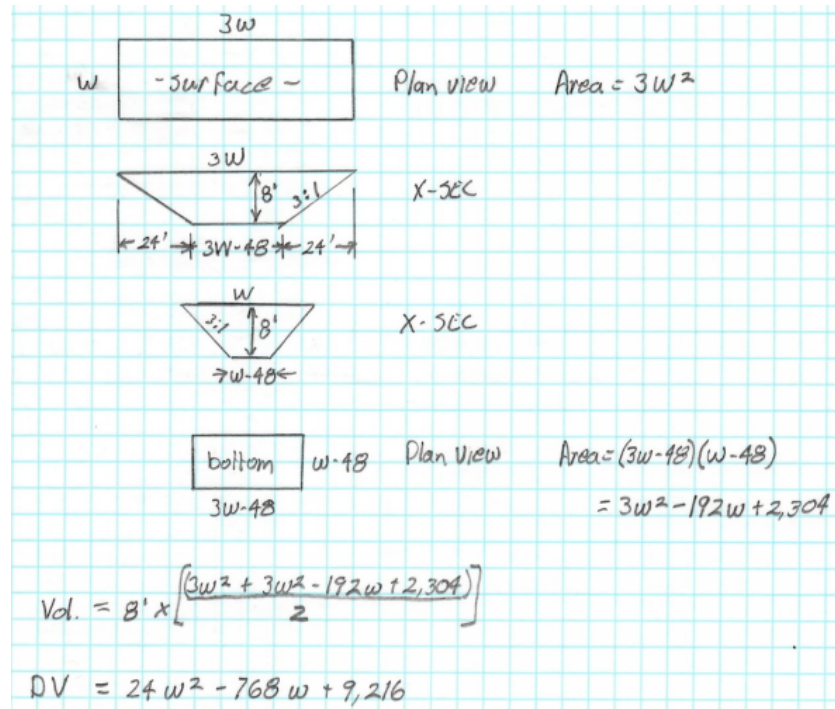 3w
w - surface - Plan view Area = 3w²
3W
8' 3:1 X-SEC
24' 3W-48 24'
w
3:1 8' X-SEC
w-48
bottom w-48 Plan View Area = (3w-48)(w-48)
3w-48 = 3w² - 192w + 2,304
Vol. = 8' x [(3w² + 3w² - 192w + 2,304) / 2]
DV = 24w² - 768w + 9,216